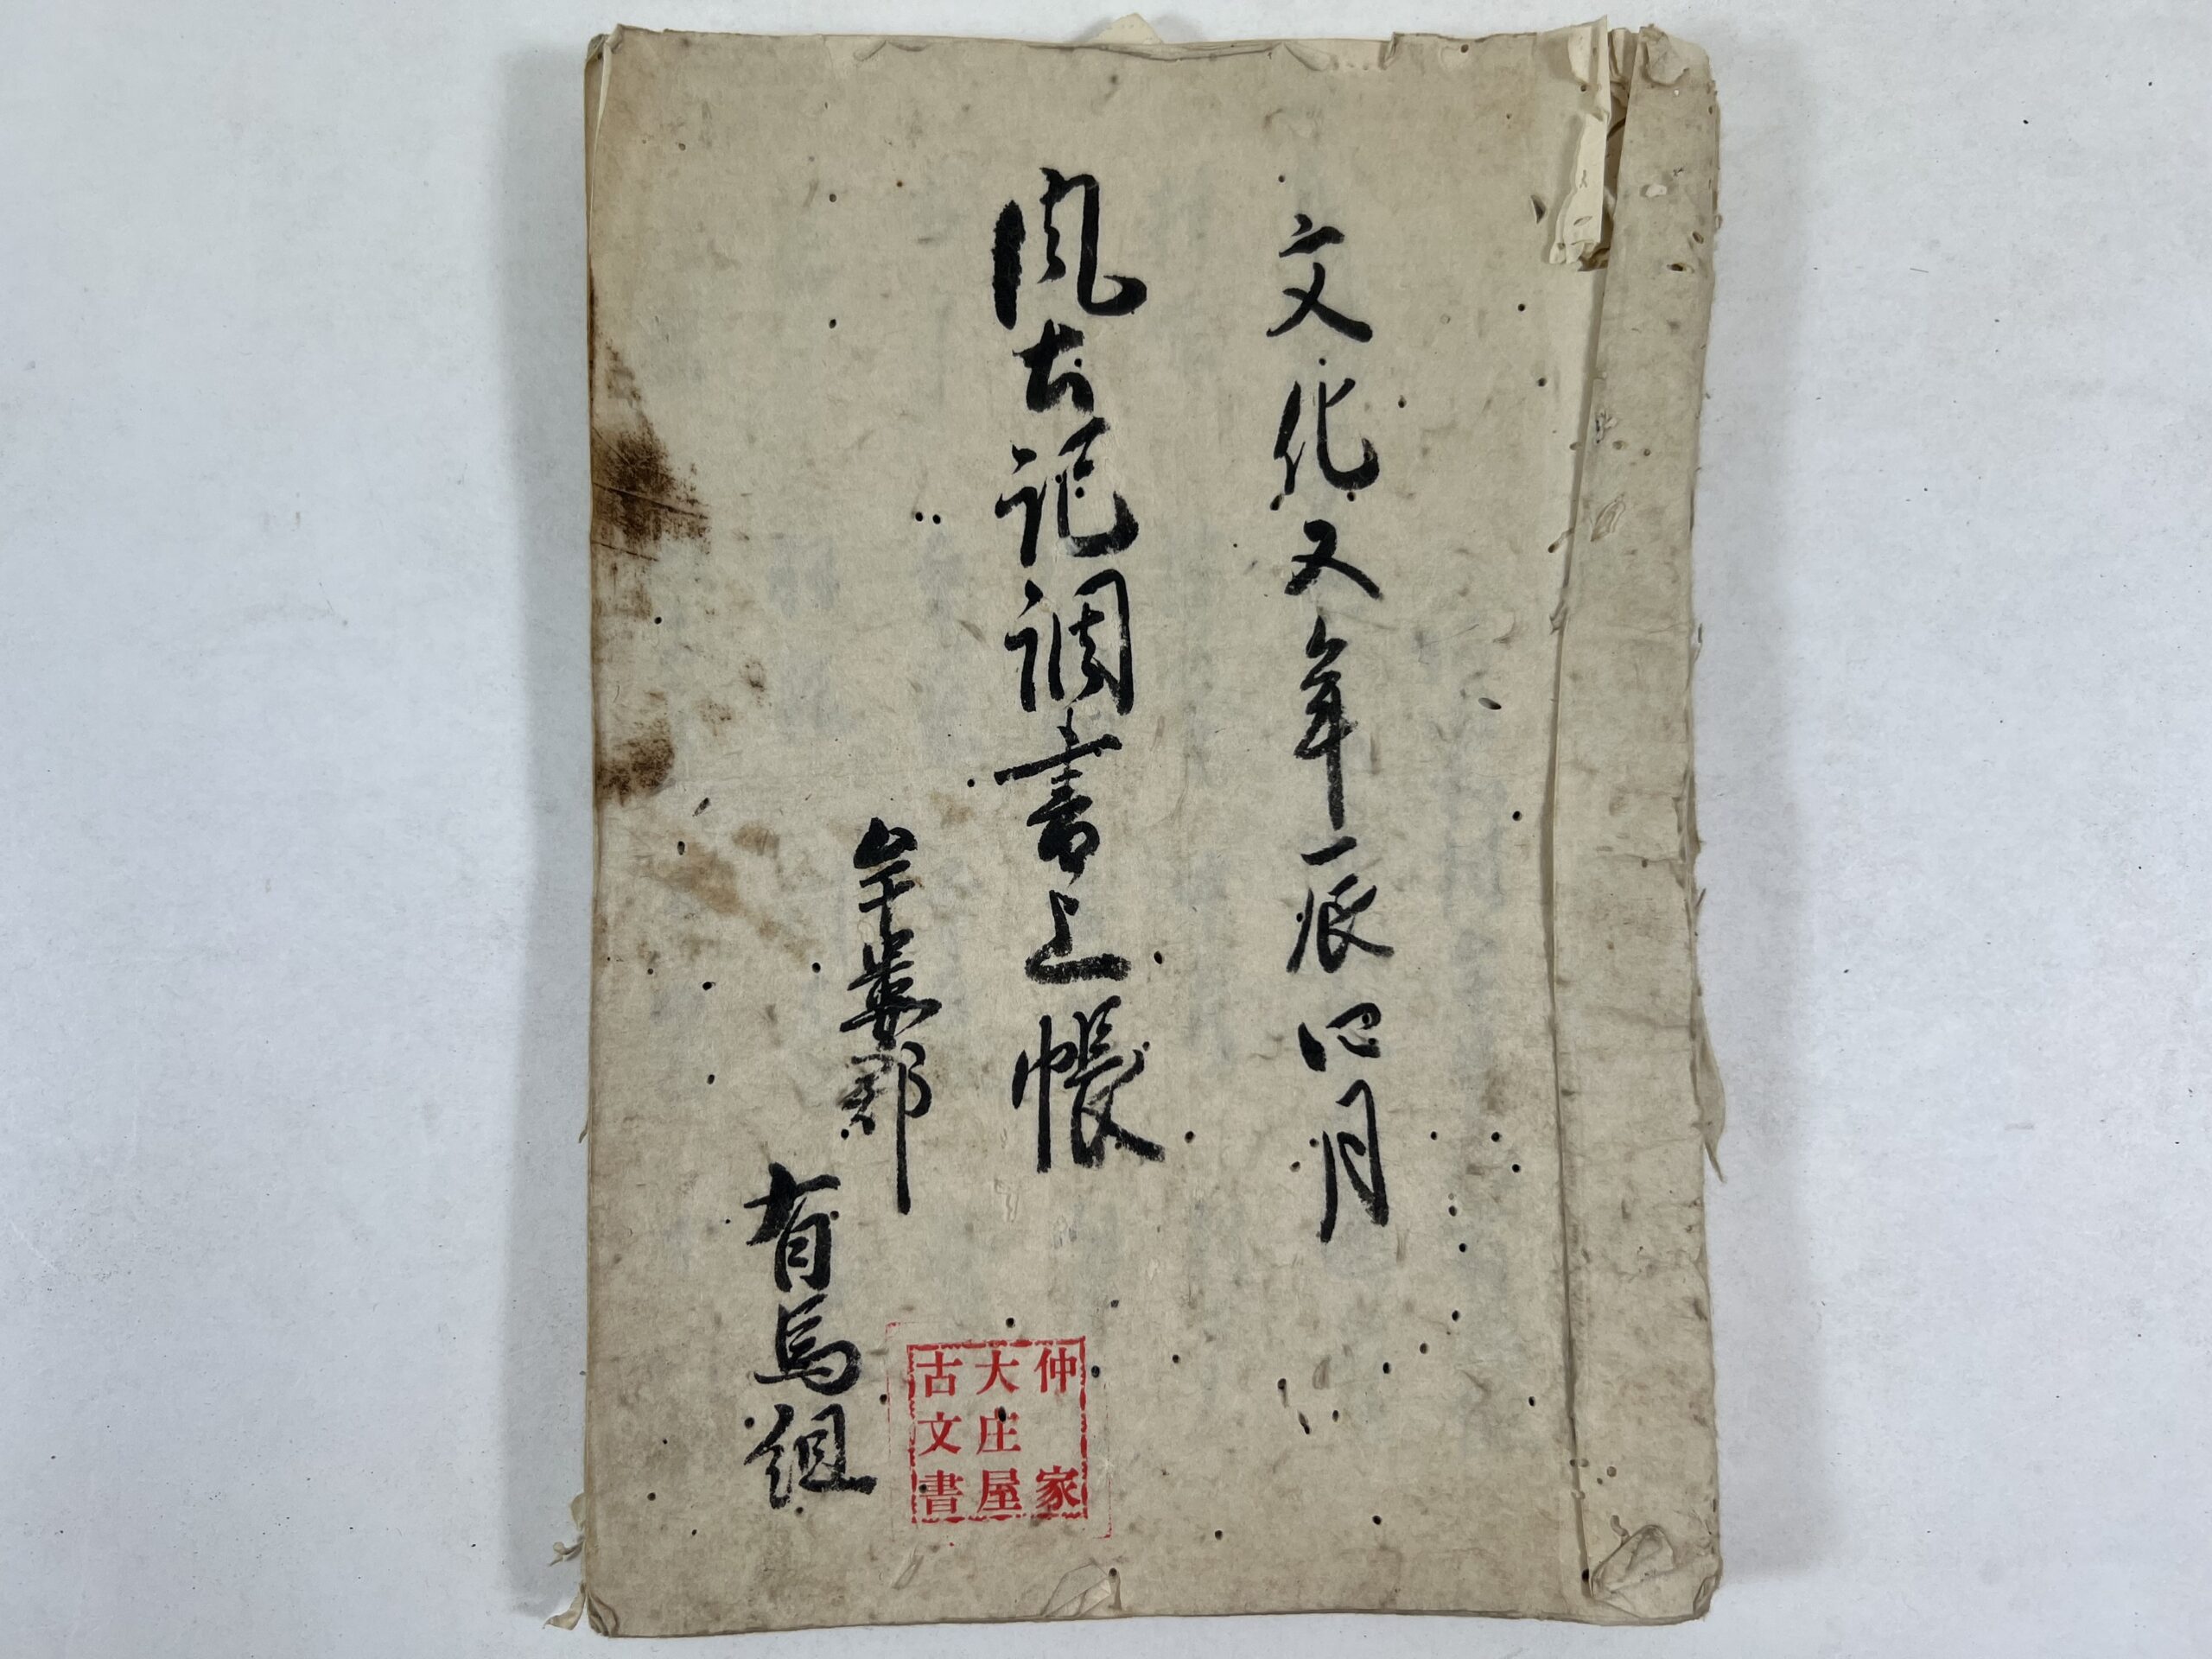 文化五年辰四月
風土記調書上帳
牟婁郡
有馬組
仲家
大庄屋
古文書